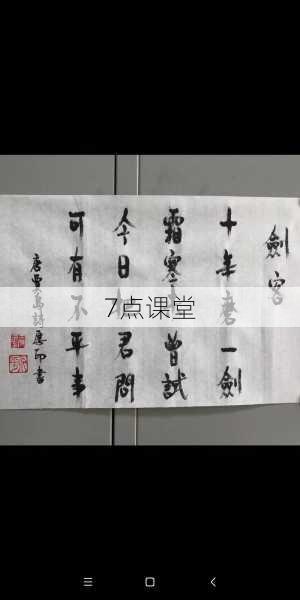 劍客
十年磨一劍
霜寒曾試
今日君問
可有不平事
唐賈島詩應書
7点课堂